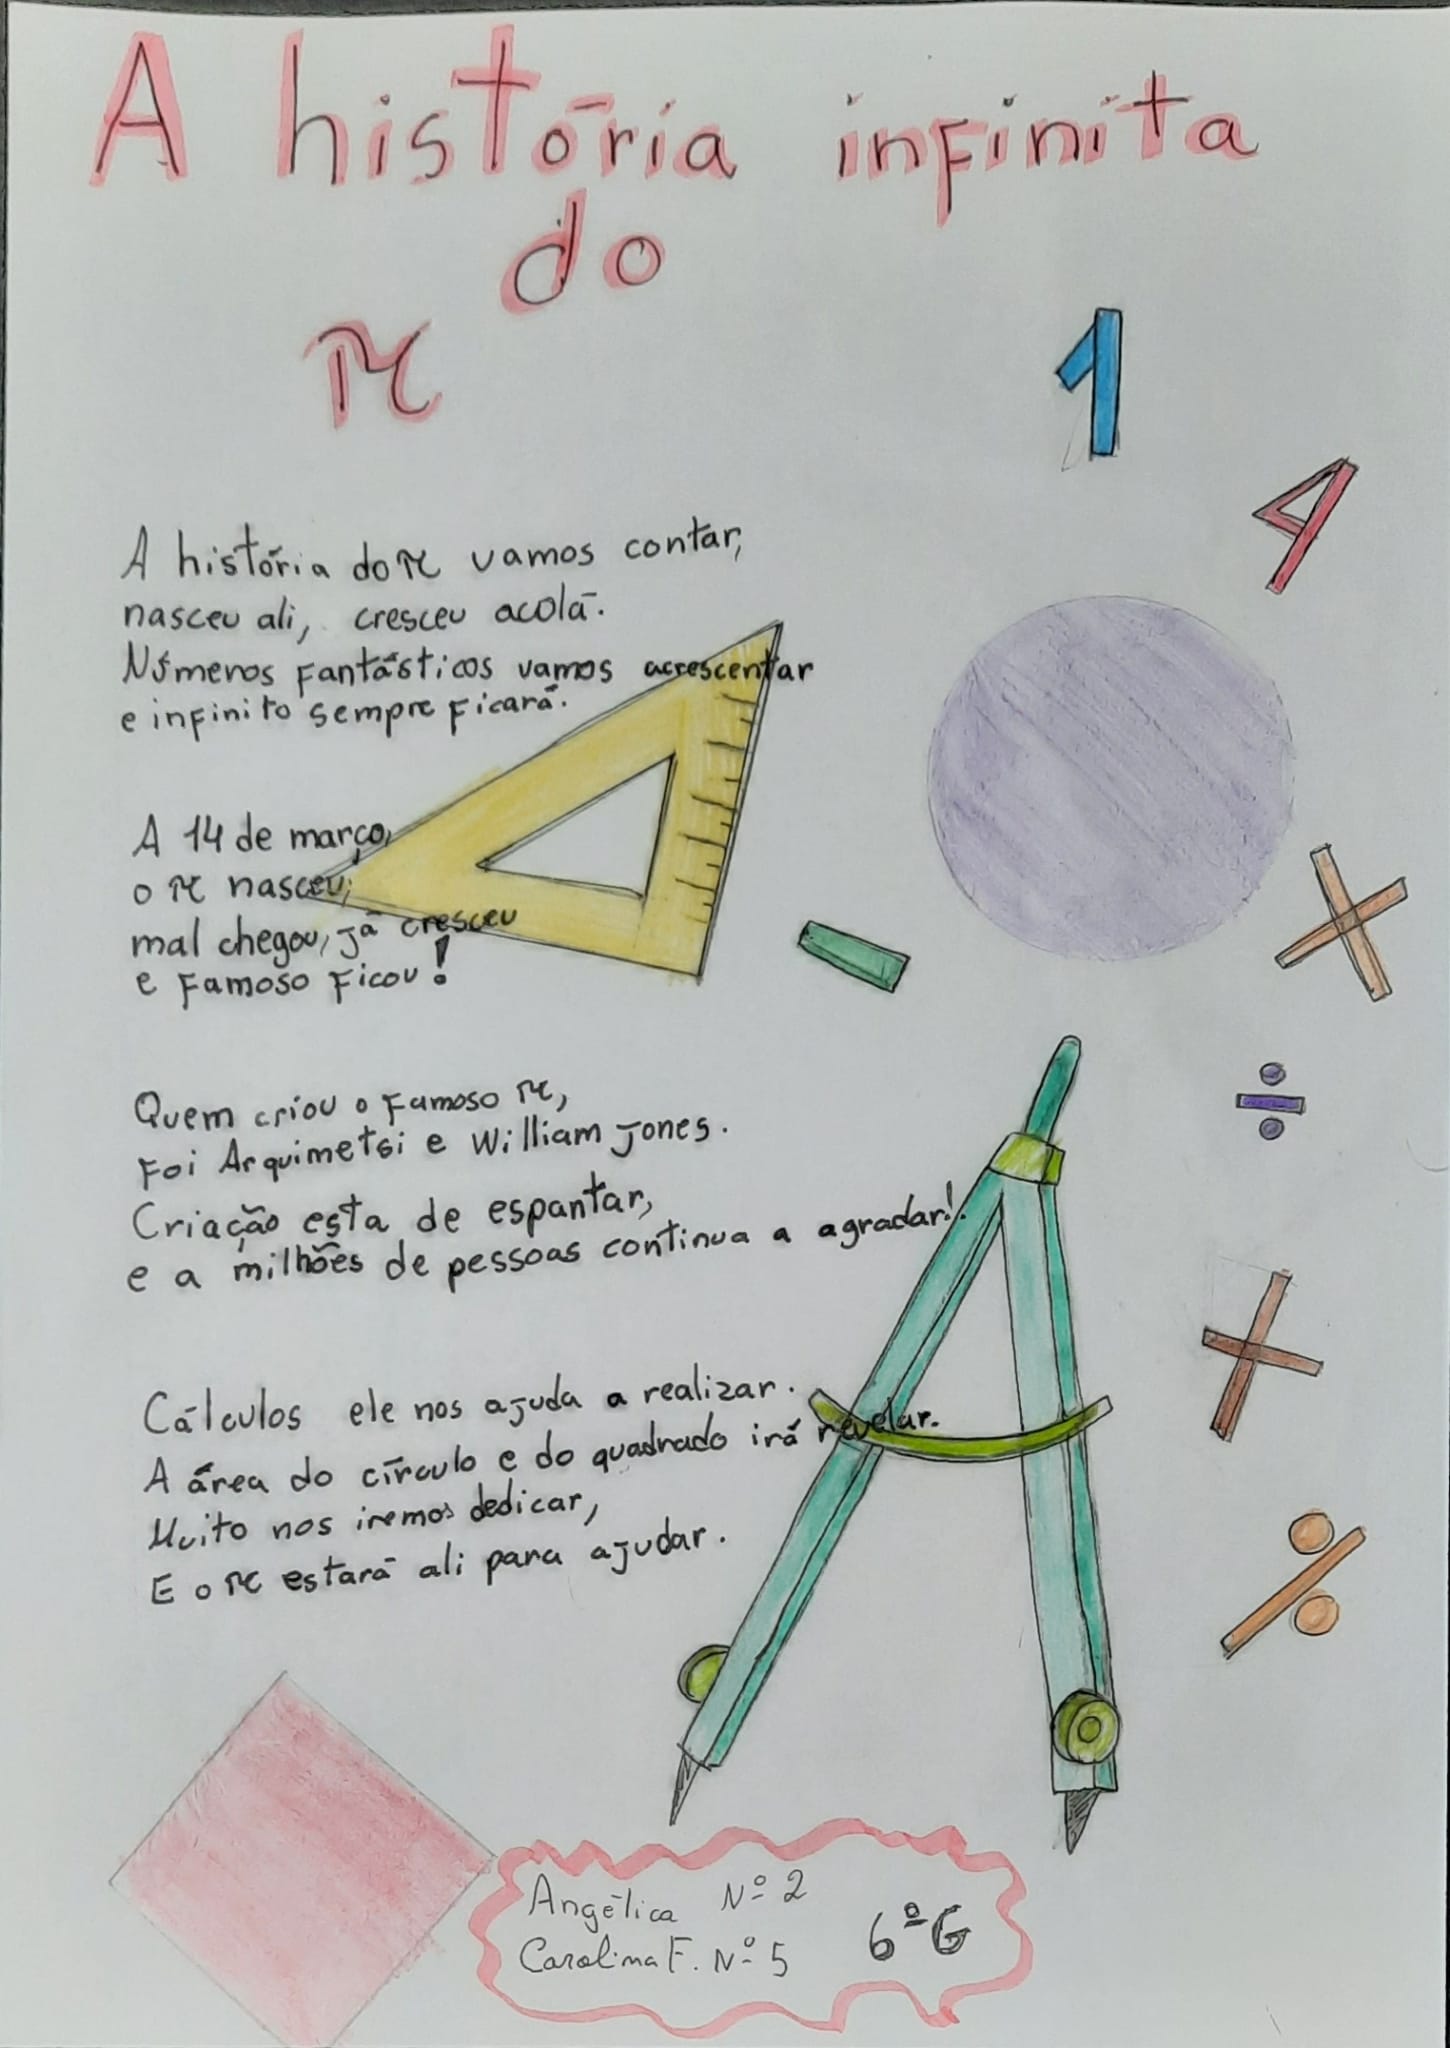 A história infinita
do
π
1
4
A história do π vamos contar,
nasceu ali, cresceu acolá.
Números fantásticos vamos acrescentar
e infinito sempre ficará.
A 14 de março,
o π nasceu;
mal chegou, já cresceu
e famoso ficou!
-
×
Quem criou o famoso π,
Foi Arquimetsi e William Jones.
Criação esta de espantar,
e a milhões de pessoas continua a agradar!.
÷
+
Cálculos ele nos ajuda a realizar.
A área do círculo e do quadrado irá revelar.
Muito nos iremos dedicar,
E o π estará ali para ajudar.
%
Angélica Nº 2
Carolina F. Nº 5
6º G